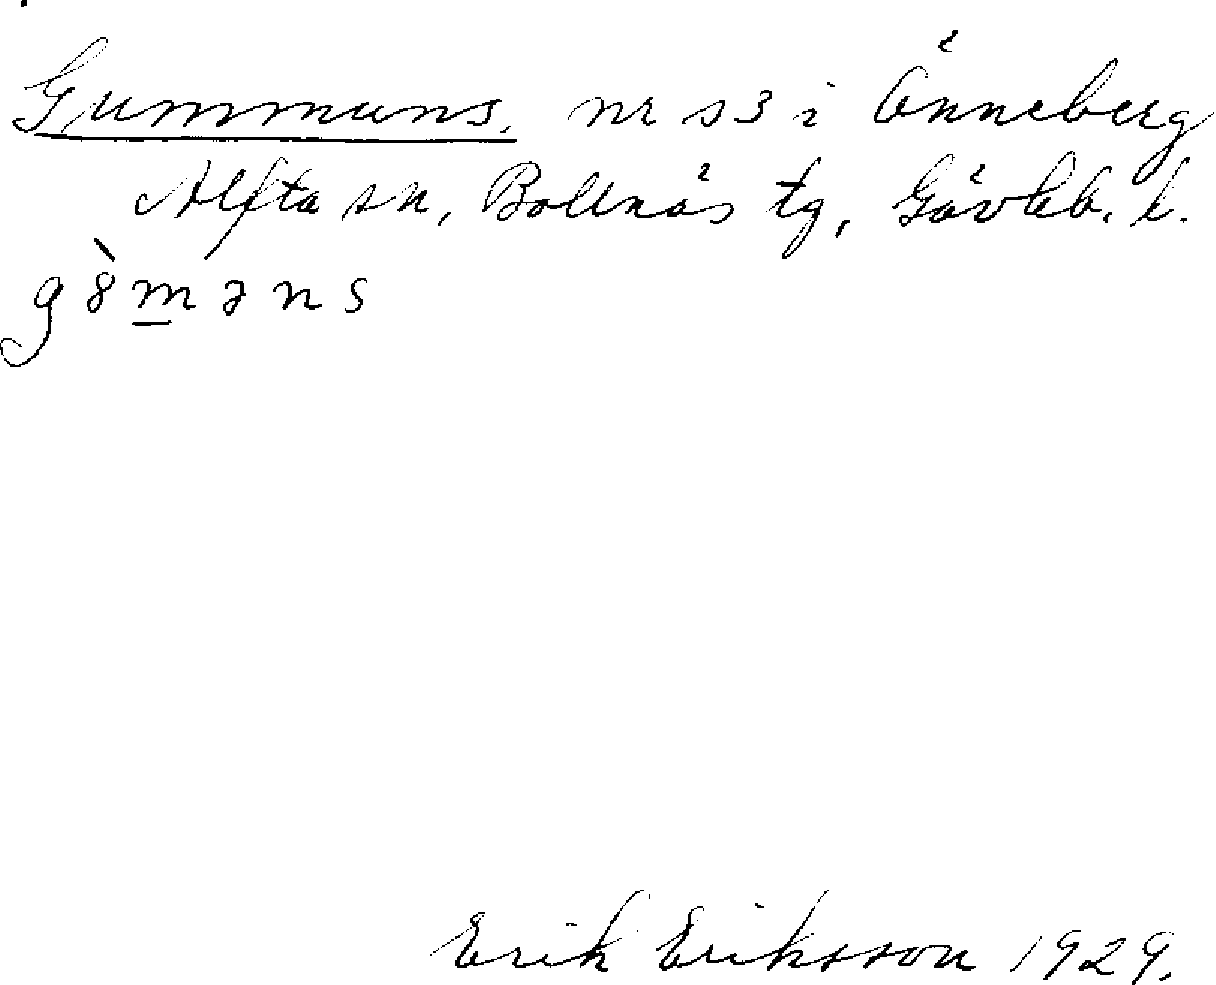 Gummuns, nr s3 i Önneberg
Alfta sn, Bollnäs tg, Gävleb. l.
gò̀m̲əns
Erik Eriksson 1929.